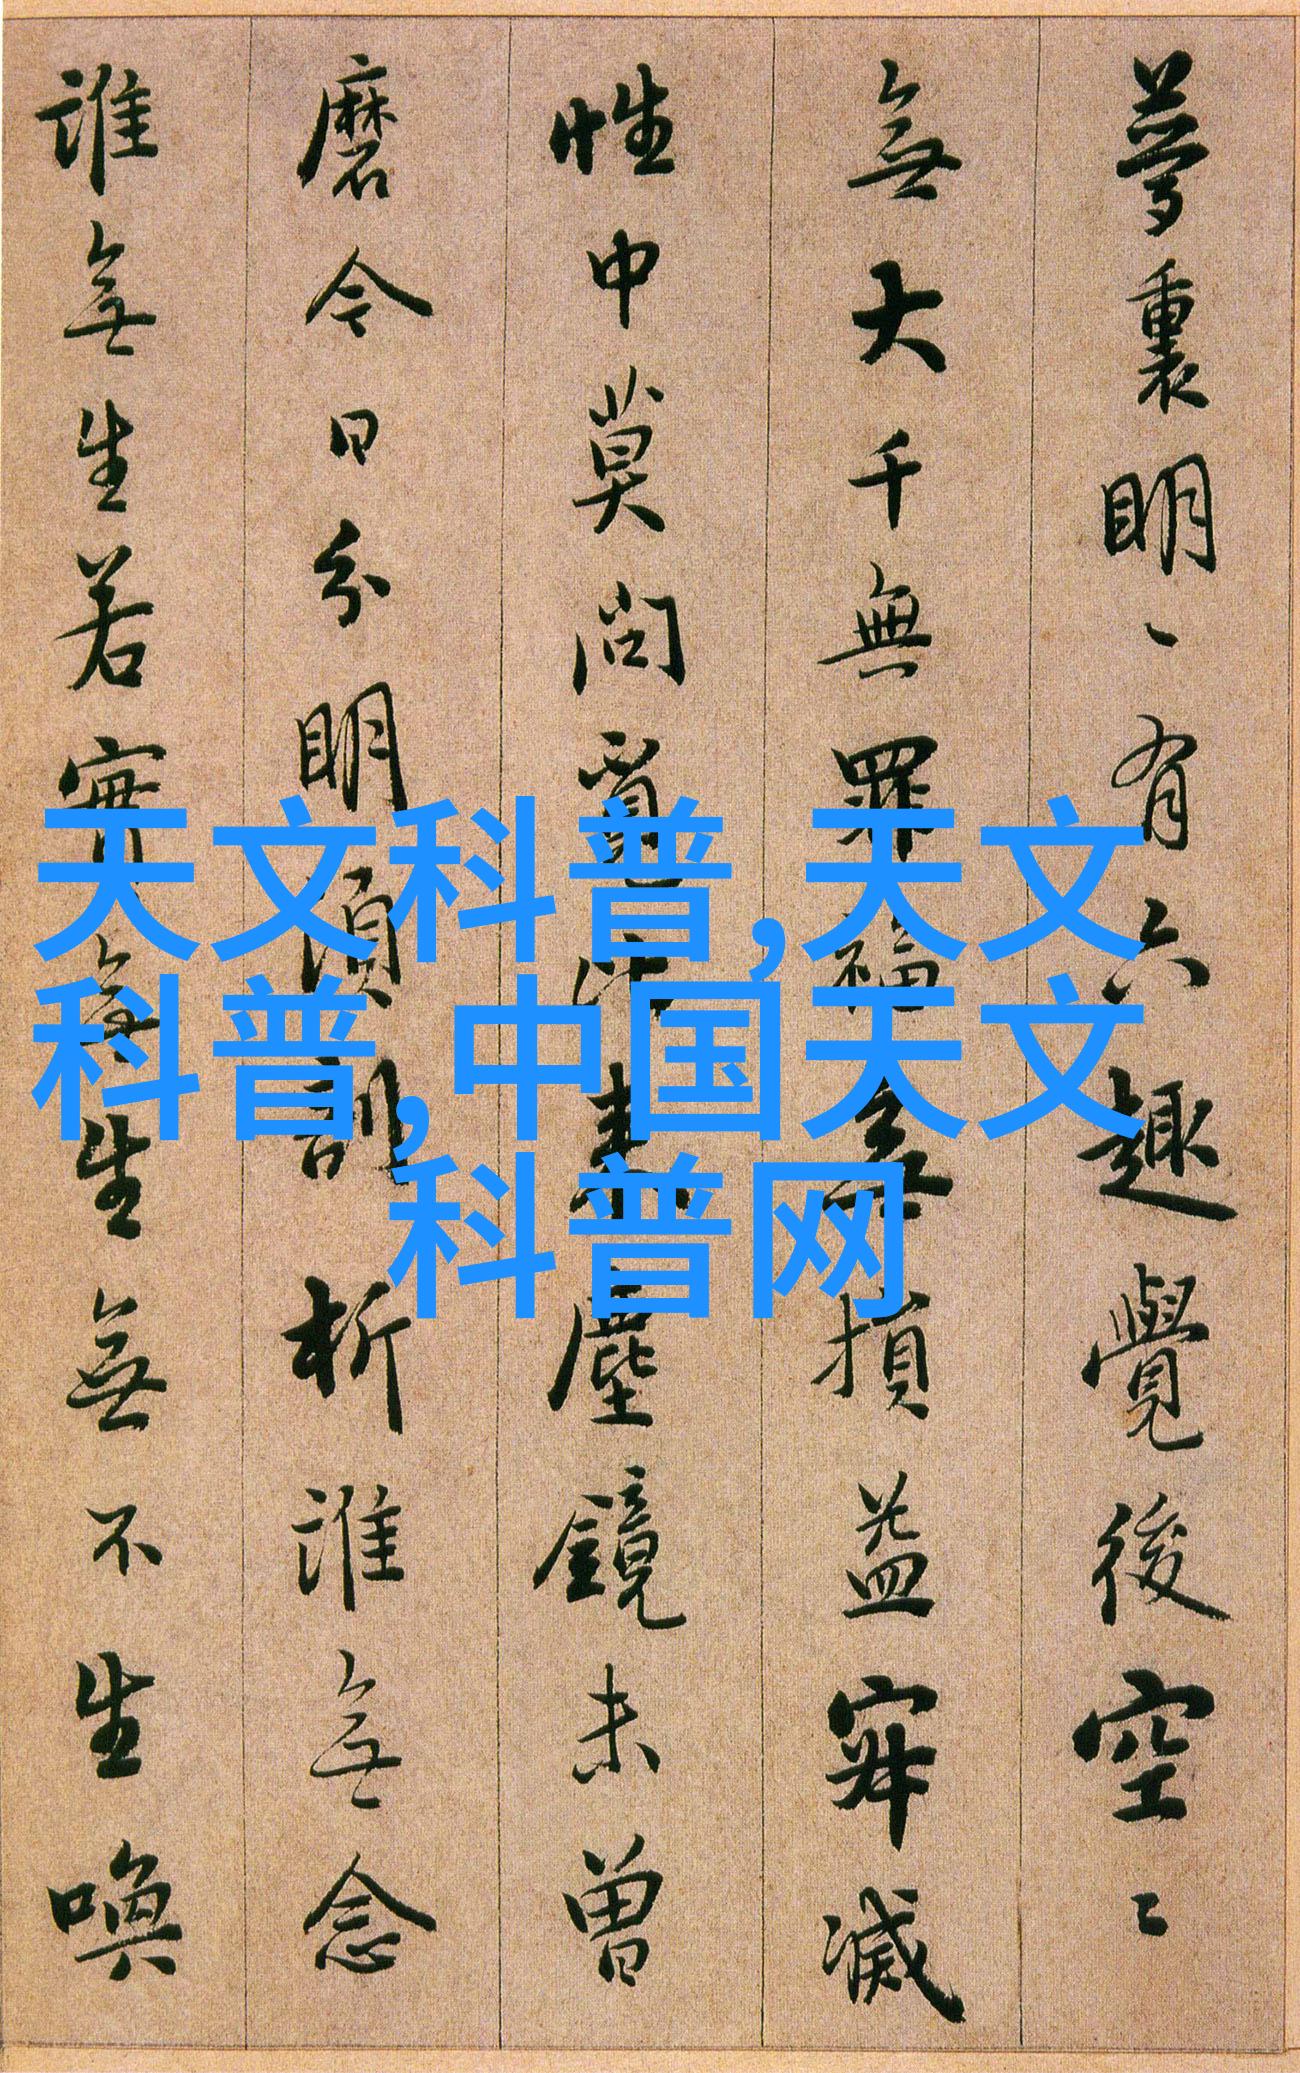 夢裏明ヽ有六趣覺後空〻
無大千無罪福無損益寂滅
性中莫問覓比來塵鏡未曾
磨今日分明須剖析誰無念
誰無生若實無生無不生喚
天文科普,天文
科普,中国天文
科普网